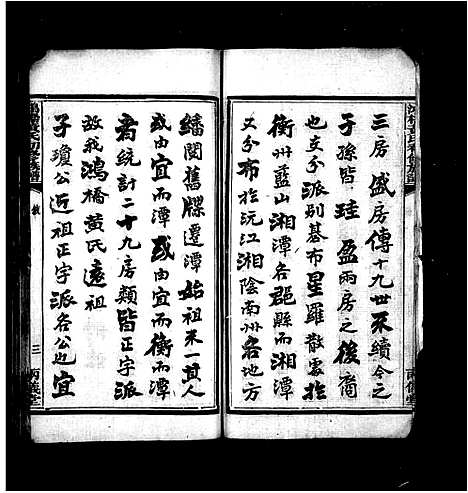 三房盛房傳十九世不續今之
子孫皆珪盈兩房之後裔
也支分派別碁布星羅散處於
衡州藍山湘潭各郡縣而湘潭
又分布於沅江湘陰南州各地方
繙閱舊牒遷潭始祖不一其人
或由宜而潭或由宜而衡而潭
者統計二十九房類皆正字派
故我鴻橋黃氏遠祖
子瓊公近祖正字派各公也宜
三
兩儀堂